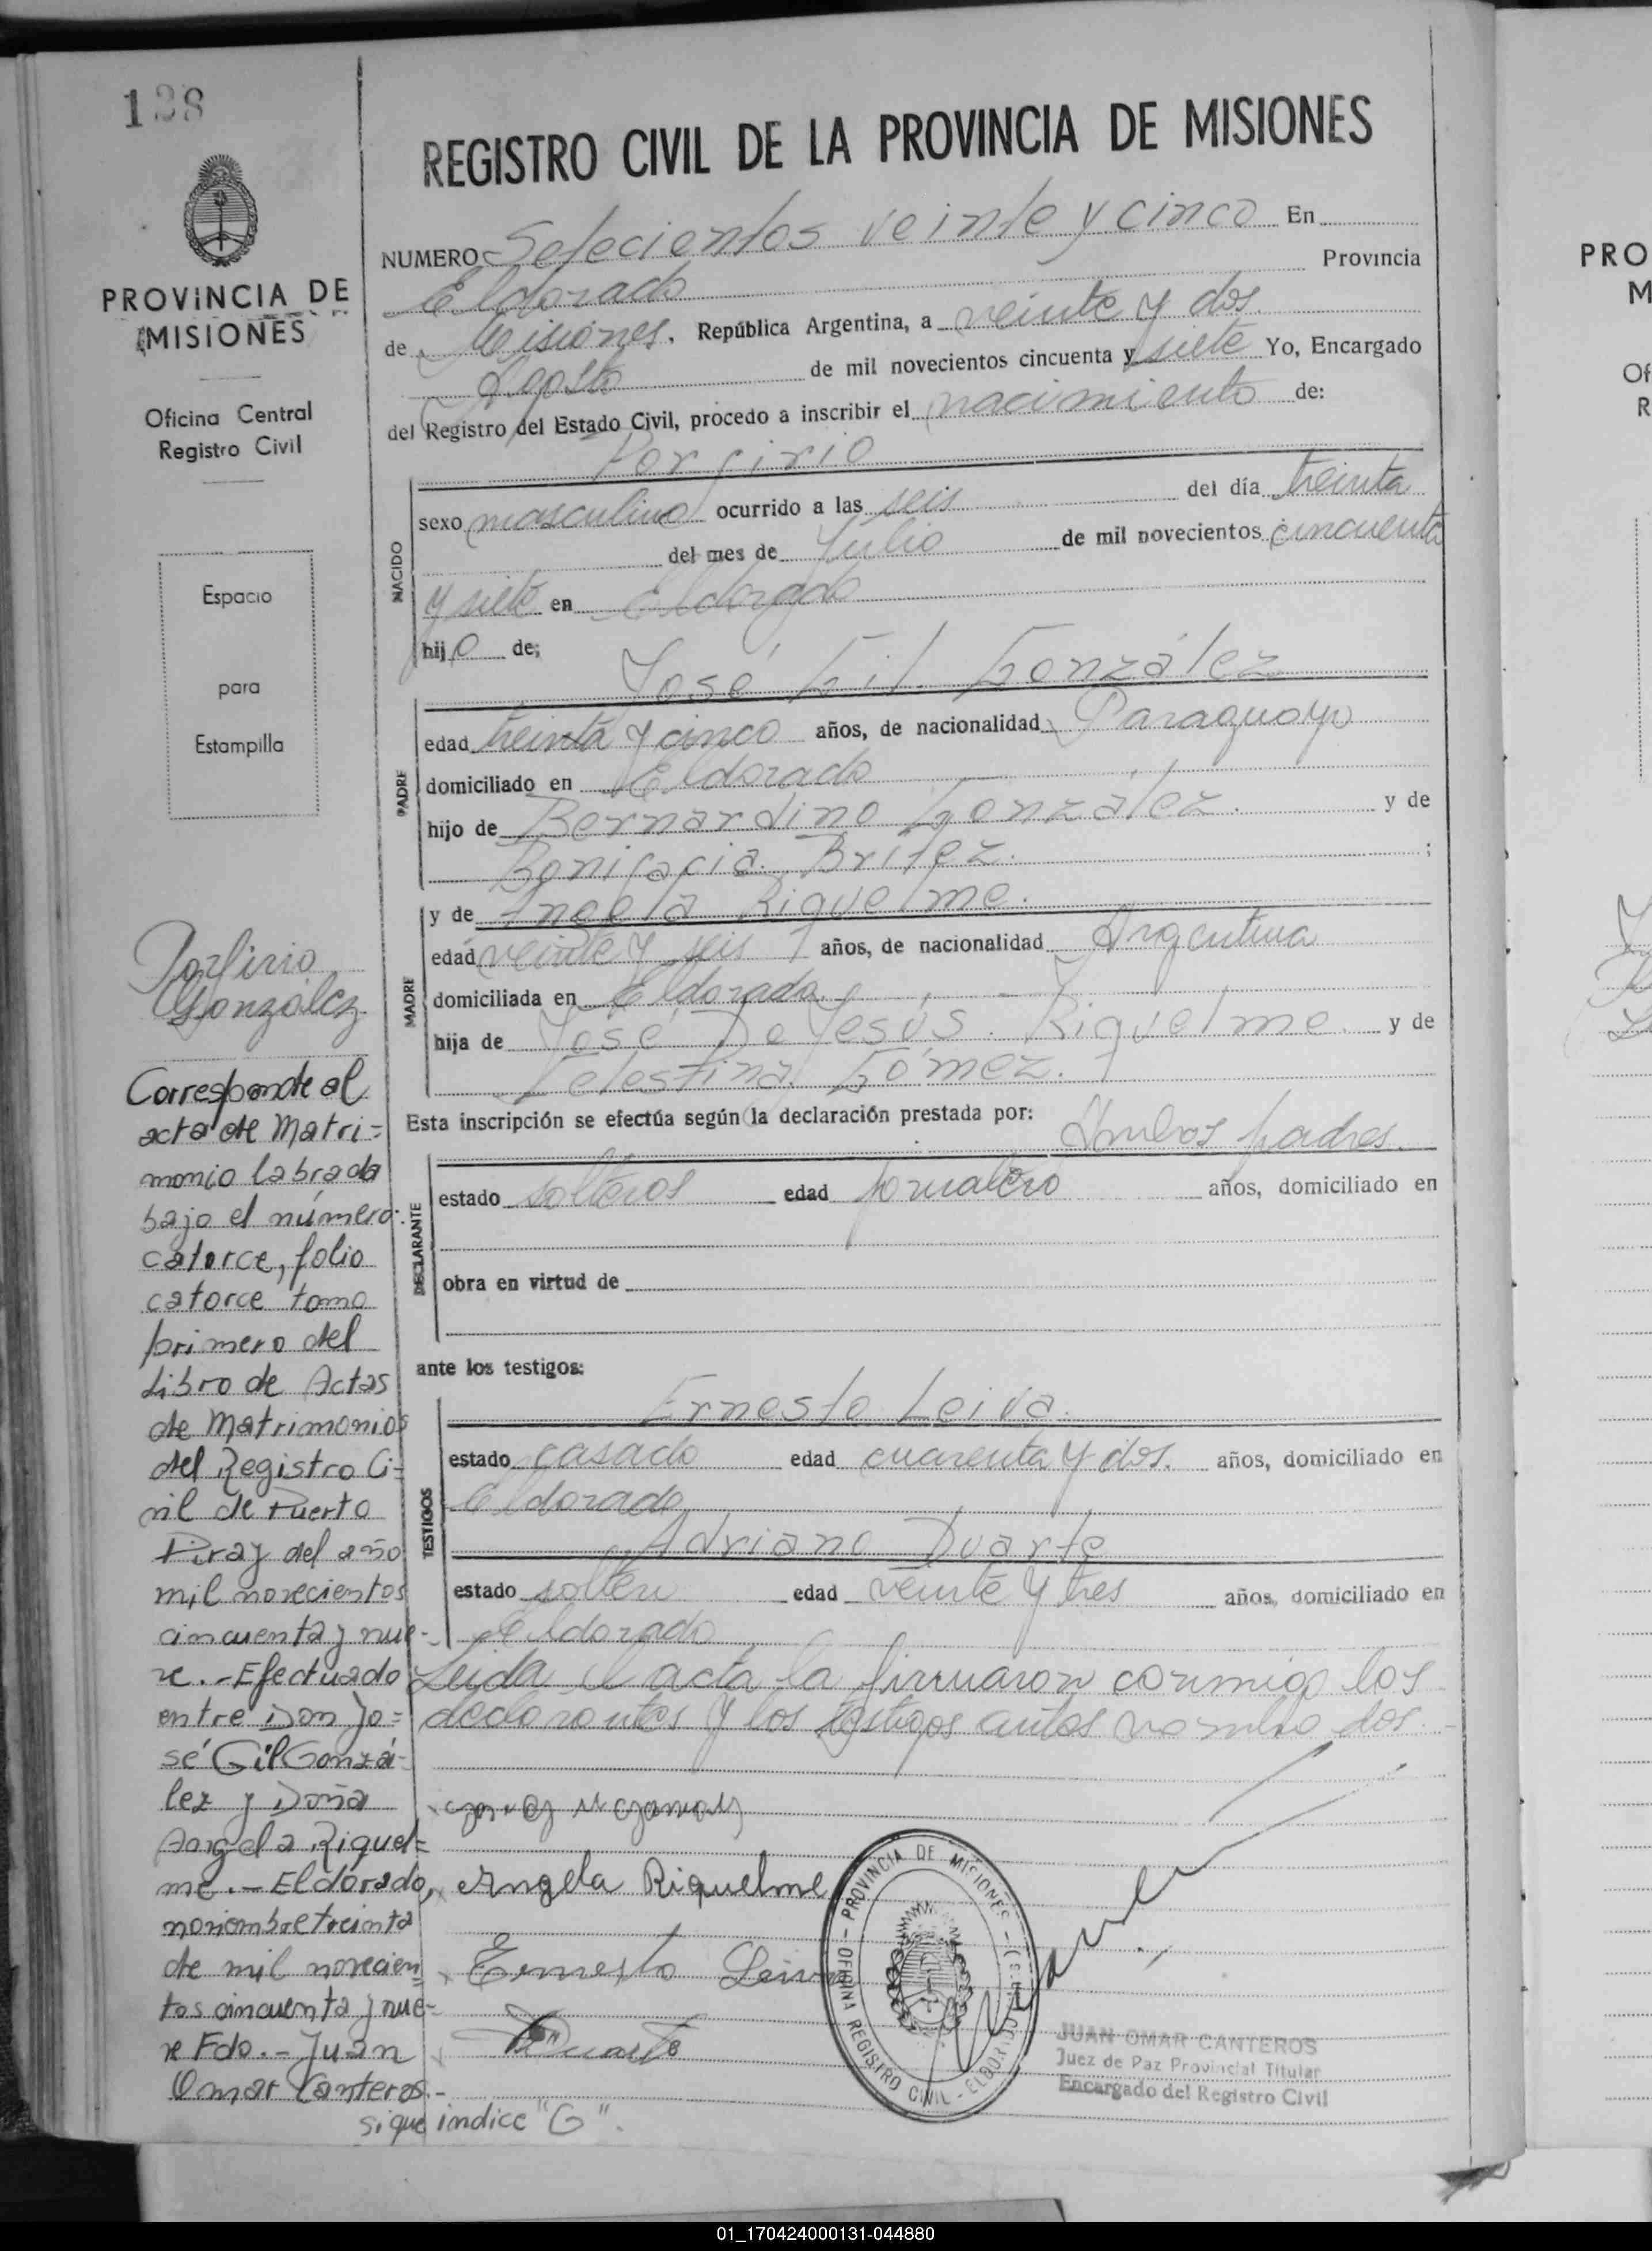 138
PROVINCIA DE
MISIONES
Oficina Central
Registro Civil
Espacio
para
Estampilla
REGISTRO CIVIL DE LA PROVINCIA DE MISIONES
NUMERO Setecientos veinte y cinco En
Eldorado Provincia
de Misiones, República Argentina, a veinte y dos
Agosto de mil novecientos cincuenta y siete Yo, Encargado
del Registro del Estado Civil, procedo a inscribir el nacimiento de:
Porfirio
NACIDO
sexo masculino ocurrido a las seis del día treinta
del mes de Julio de mil novecientos cincuenta
y siete en Eldorado
hijo de;
José Gil González
PADRE
edad treinta y cinco años, de nacionalidad Paraguayo
domiciliado en Eldorado
hijo de Bernardino González. y de
Bonifacia Britez. ;
y de Angela Riquelme.
MADRE
edad veinte y seis años, de nacionalidad Argentina
domiciliada en Eldorado
hija de José De Jesús Riquelme y de
Celestina Gómez.
Esta inscripción se efectúa según la declaración prestada por:
Ambos padres.
DECLARANTE
estado solteros edad jornalero años, domiciliado en
obra en virtud de
ante los testigos:
Ernesto Leiva.
TESTIGOS
estado casado edad cuarenta y dos. años, domiciliado en
Eldorado
Adriano Duarte
estado soltero edad veinte y tres años, domiciliado en
Eldorado
Leida el acta la firmaron conmigo los
declarantes y los testigos antes nombrados.
Angela Riquelme
Ernesto Leiva
Duarte
PROVINCIA DE MISIONES
OFICINA REGISTRO CIVIL - ELDORADO
JUAN OMAR CANTEROS
Juez de Paz Provincial Titular
Encargado del Registro Civil
Porfirio
González
Corresponde al
acta de Matri=
monio labrada
bajo el número
catorce, folio
catorce tomo
primero del
Libro de Actas
de Matrimonios
del Registro Ci=
vil de Puerto
Piray del año
mil novecientos
cincuenta y nue-
ve.- Efectuado
entre Don Jo=
sé Gil Gonzá-
lez y Doña
Angela Riquel=
me.- Eldorado,
noviembre treinta
de mil novecien
tos cincuenta y nue-
ve Fdo.- Juan
Omar Canteros.-
sigue indice "G".
PRO
M
Of
R
01_170424000131-044880